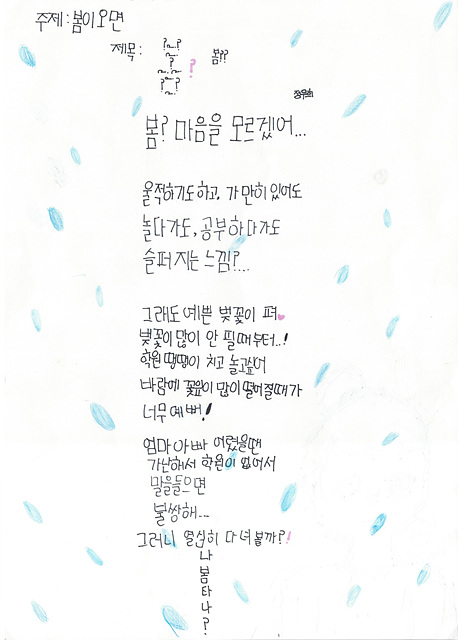 주제: 봄이오면
제목: ? 봄??
정우혁
봄? 마음을 모르겠어...
울적하기도하고, 가만히 있어도
놀다가도, 공부하다가도
슬퍼지는느낌?...
그래도 예쁜 벚꽃이 펴
벚꽃이 많이 안 필때부터..!
학원 땡땡이 치고 놀고싶어
바람에 꽃잎이 많이 떨어질때가
너무 예뻐!
엄마아빠 어렸을땐
가난해서 학원이 없어서
말을들으면
불쌍해...
그러니 열심히 다녀볼까?!
나
봄
타
나
?